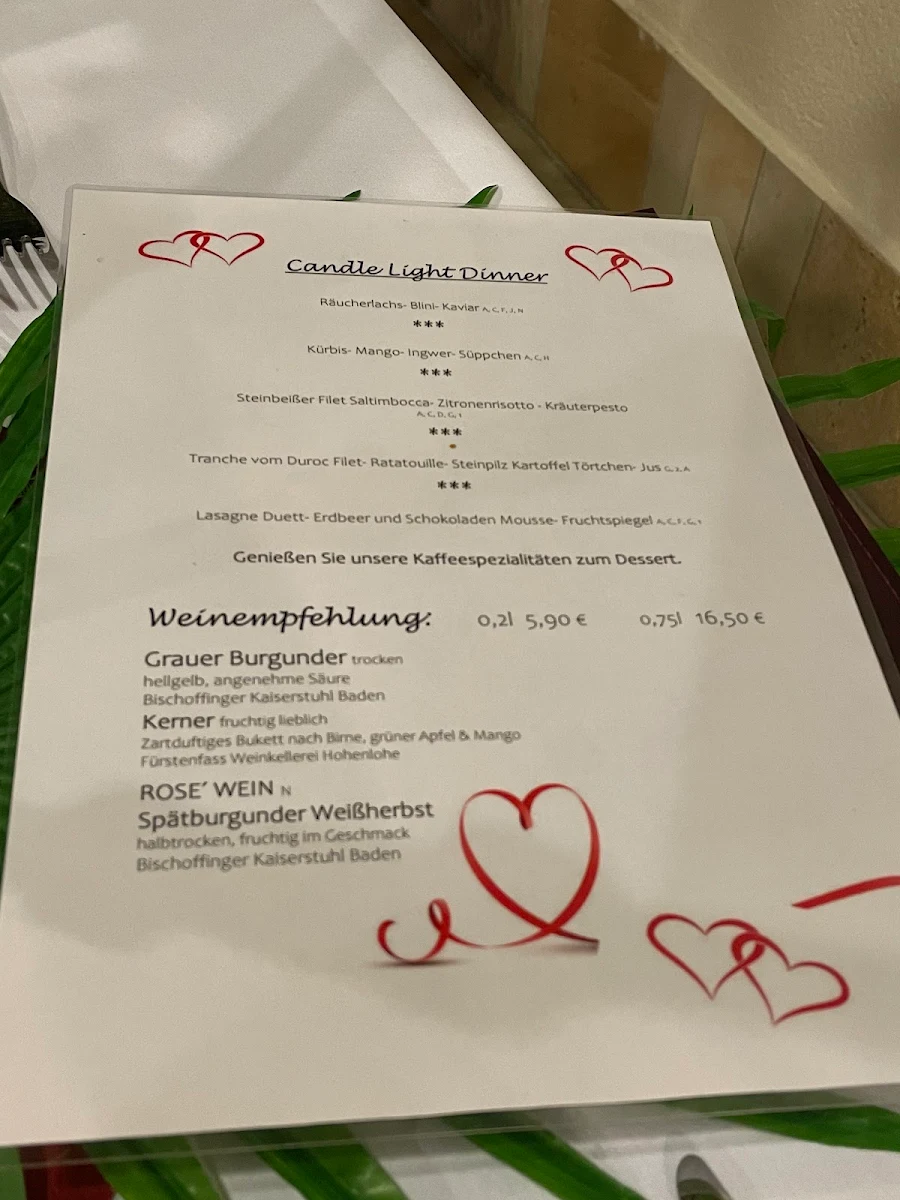 Candle Light Dinner
Räucherlachs- Blini- Kaviar A, C, F, J, N
***
Kürbis- Mango- Ingwer- Süppchen A, C, H
***
Steinbeißer Filet Saltimbocca- Zitronenrisotto - Kräuterpesto
A, C, D, G, 1
***
Tranche vom Duroc Filet- Ratatouille- Steinpilz Kartoffel Törtchen- Jus
***
Lasagne Duett- Erdbeer und Schokoladen Mousse- Fruchtspiegel
Genießen Sie unsere Kaffeespezialitäten zum Dessert.
Weinempfehlung: 0,2l 5,90 € 0,75l 16,50 €
Grauer Burgunder trocken
hellgelb, angenehme Säure
Bischoffinger Kaiserstuhl Baden
Kerner fruchtig lieblich
Zartduftiges Bukett nach Birne, grüner Apfel & Mango
Fürstenfass Weinkellerei Hohenlohe
ROSE´ WEIN N
Spätburgunder Weißherbst
halbtrocken, fruchtig im Geschmack
Bischoffinger Kaiserstuhl Baden